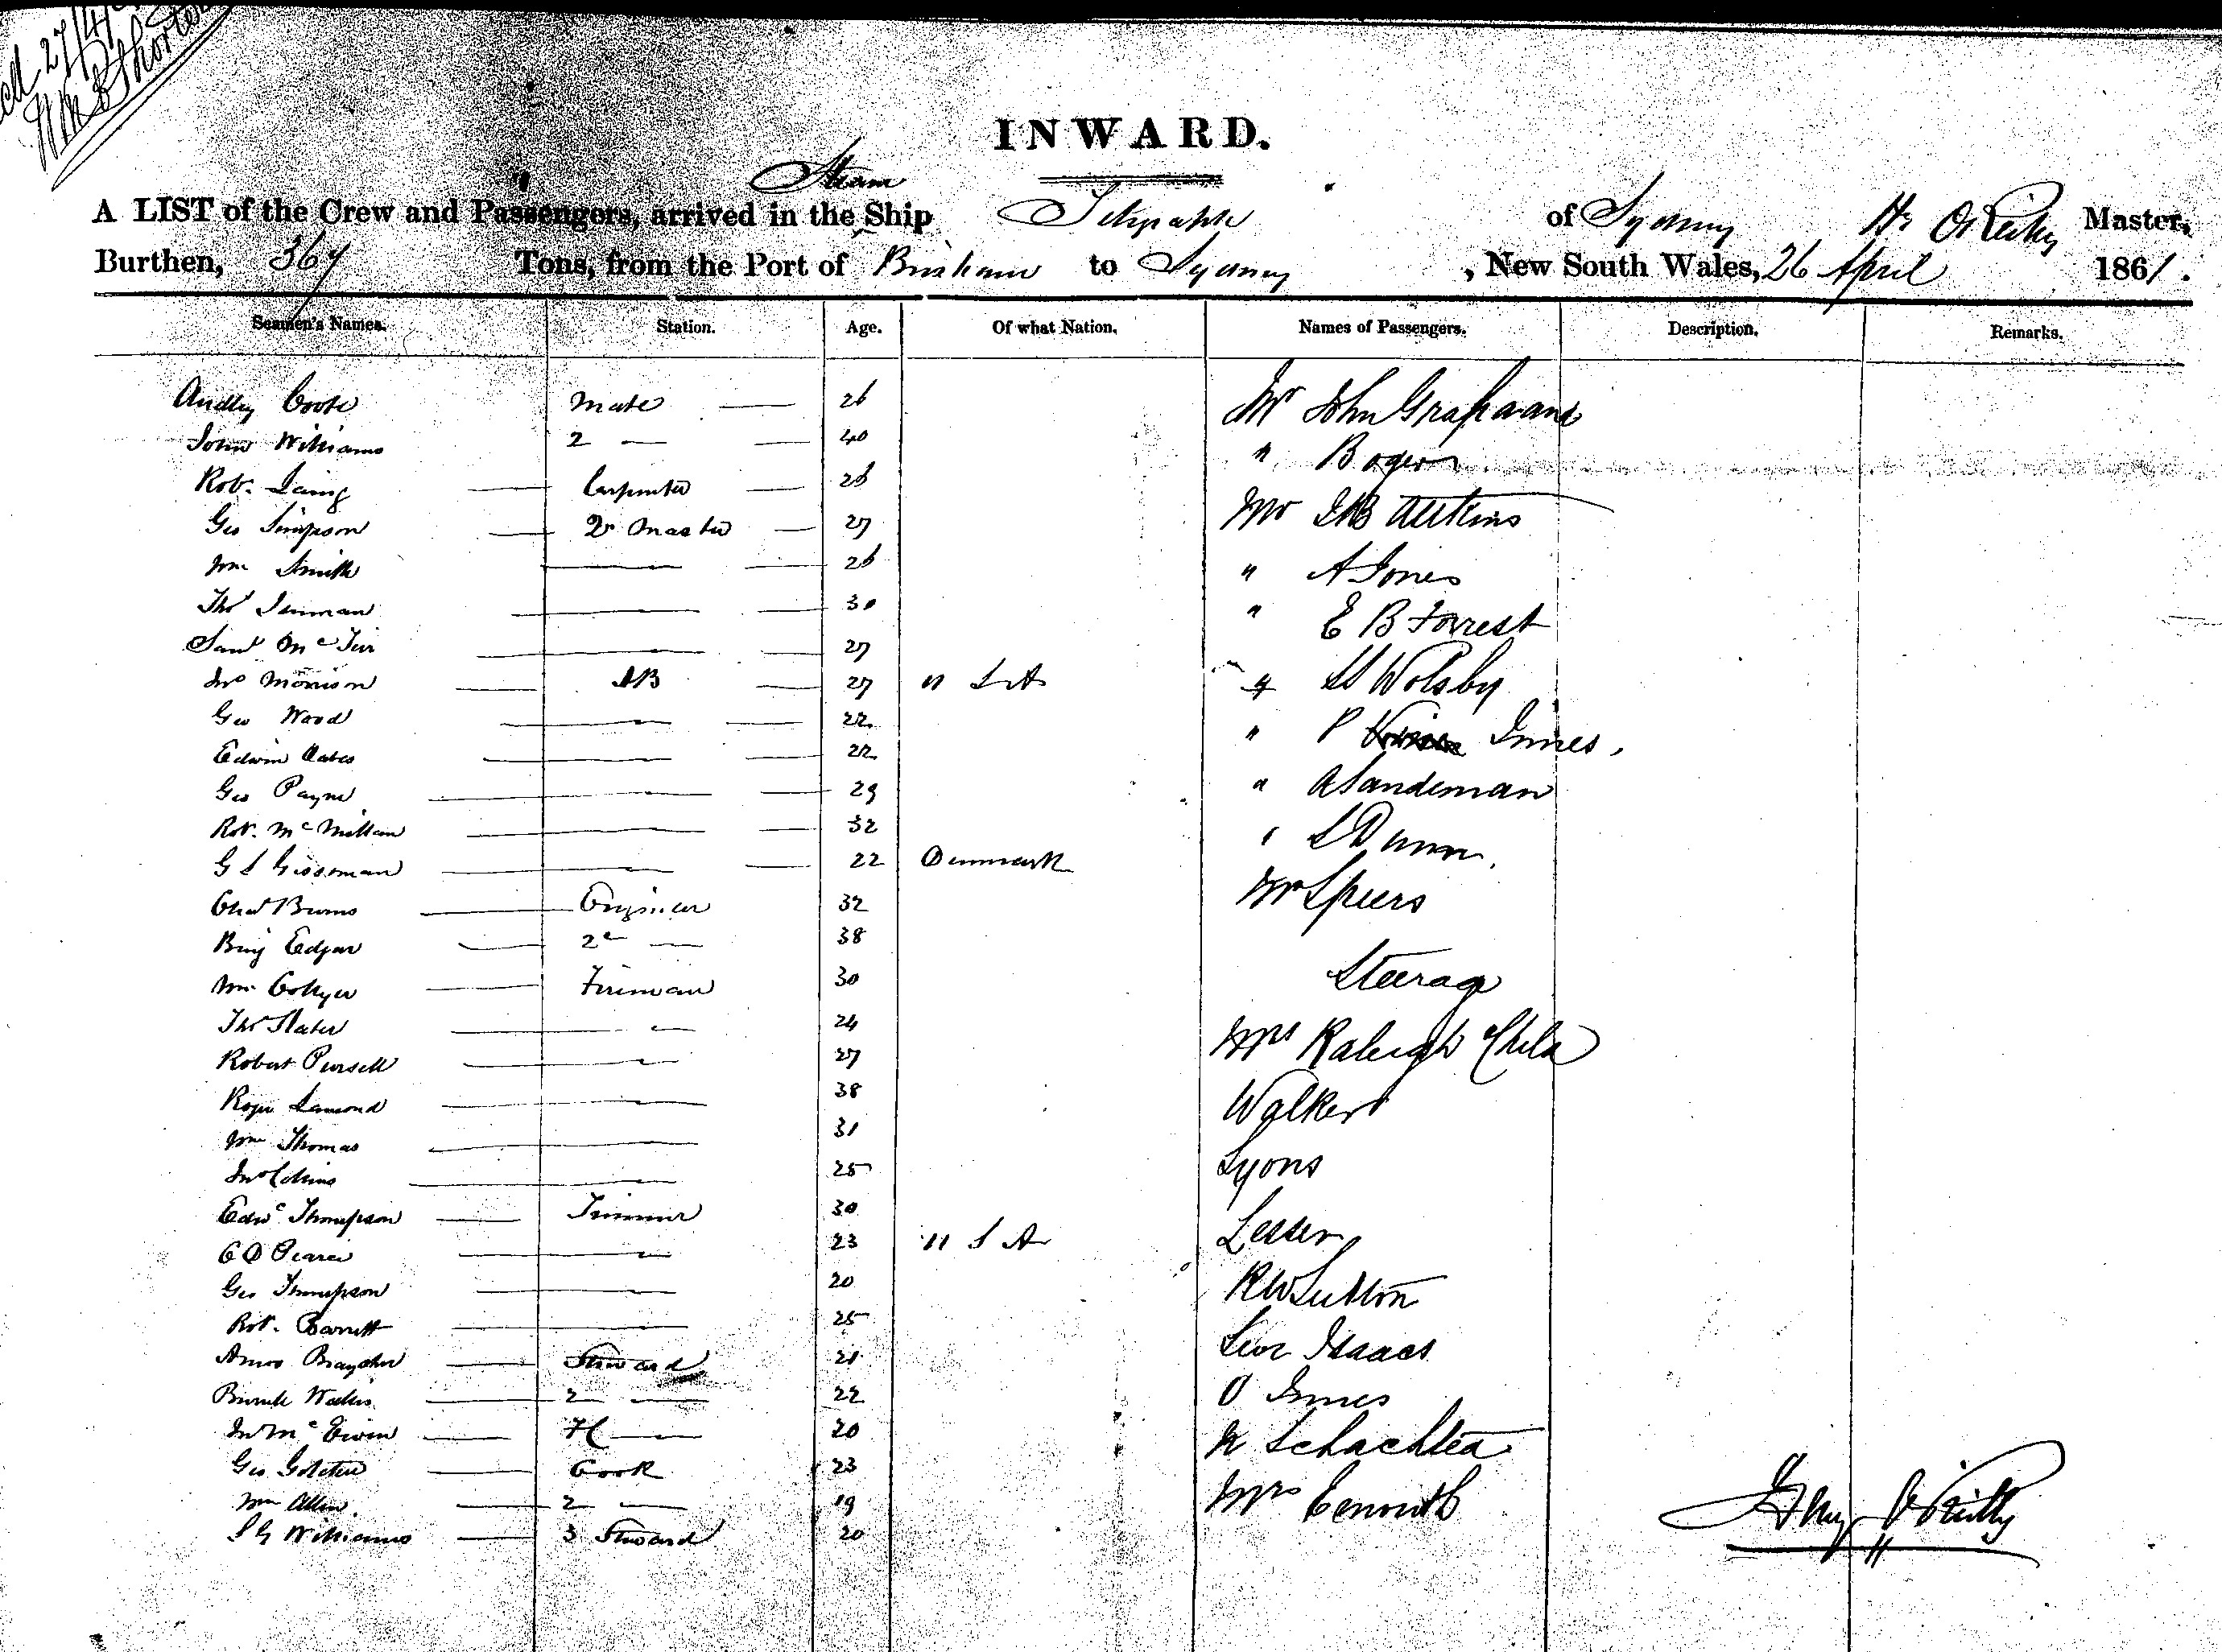 INWARD.
Steam
A LIST of the Crew and Passengers, arrived in the Ship Telegraph of Sydney Hy O'Reilly Master,
Burthen, 367 Tons, from the Port of Brisbane to Sydney, New South Wales, 26 April 1861.
Seamen's Names. Station. Age. Of what Nation. Names of Passengers. Description. Remarks.
Audley Coote Mate 26 Mr John Graham and
John Williams 2 40 " 
Robt. Laing Carpenter 26 Mr Aitkins
Geo Simpson Qr Master 27 " A Jones
Wm Smith 26 " E B Forrest
Thos 30 " Wolsby
Saml Mc 27 " P Innes,
Jno Morrison AB 27 U S A " A Sandeman
Geo Wood 22 " Dunn.
Edwin Oates 22 Mr Spiers
Geo Payne 29 Steerage
Robt. McMillan 32 Mrs Raleigh Child
G S Gissman 22 Denmark Walker
Chas Burns Engineer 32 Lyons
Benj Edgar 2d 38
Wm Collyer Fireman 30 R W Sutton
Thos Slater 24 Isaacs
Robert Pursell 27 O Innes
Roger Lamond 38
Wm Thomas 31 Mrs
Jno Collins 25
Edwd Thompson Trimmer 30
C D Pearce 23 U S A
Geo Thompson 20
Robt. Barrett 25
Amos Steward 21
2 22
Jno McEwen 20
Geo Cook 23
Wm Allen 2 19
Williams 3 Steward 20
Henry O'Reilly